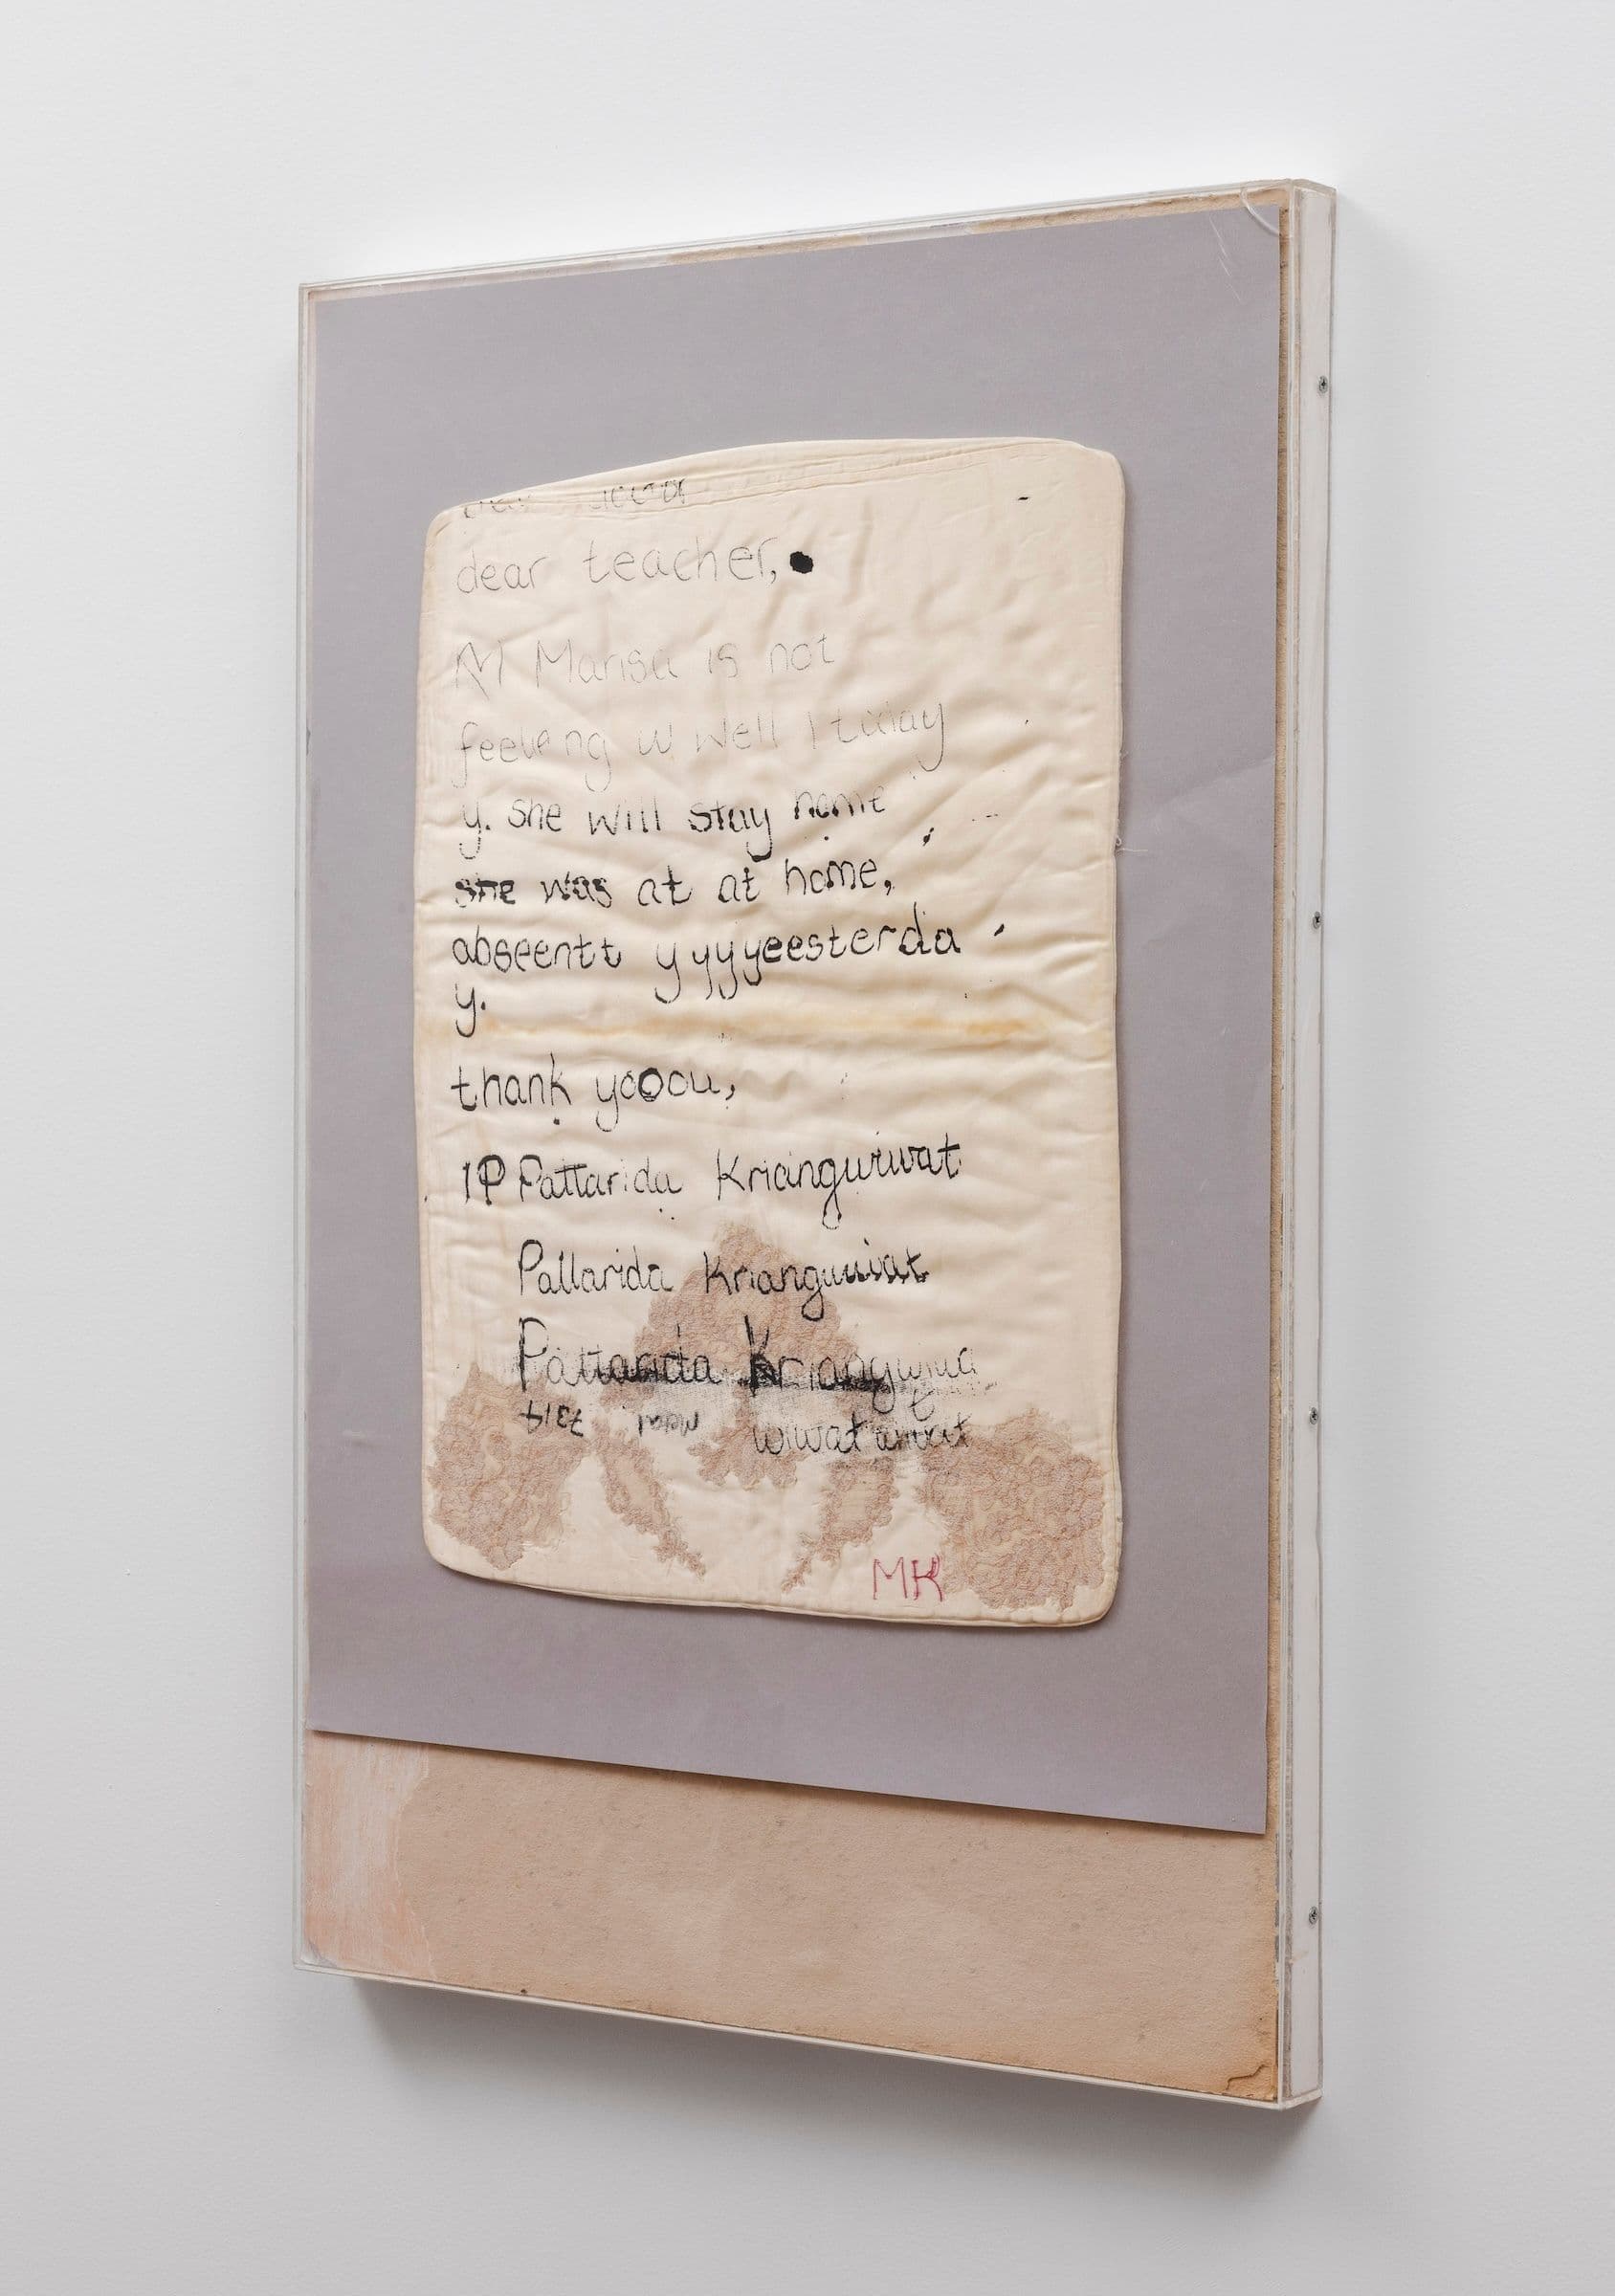 dear teacher,
M Marisa is not
feeling w well today
y. she will stay home
she was at at home,
abseentt yyyyeesterda
y.
thank yooou,
1P Pattarida Kriangwiwat
Pattarida Kriangwiwat
Pattarida Kriangwiwa
wiwat wiwat
MK